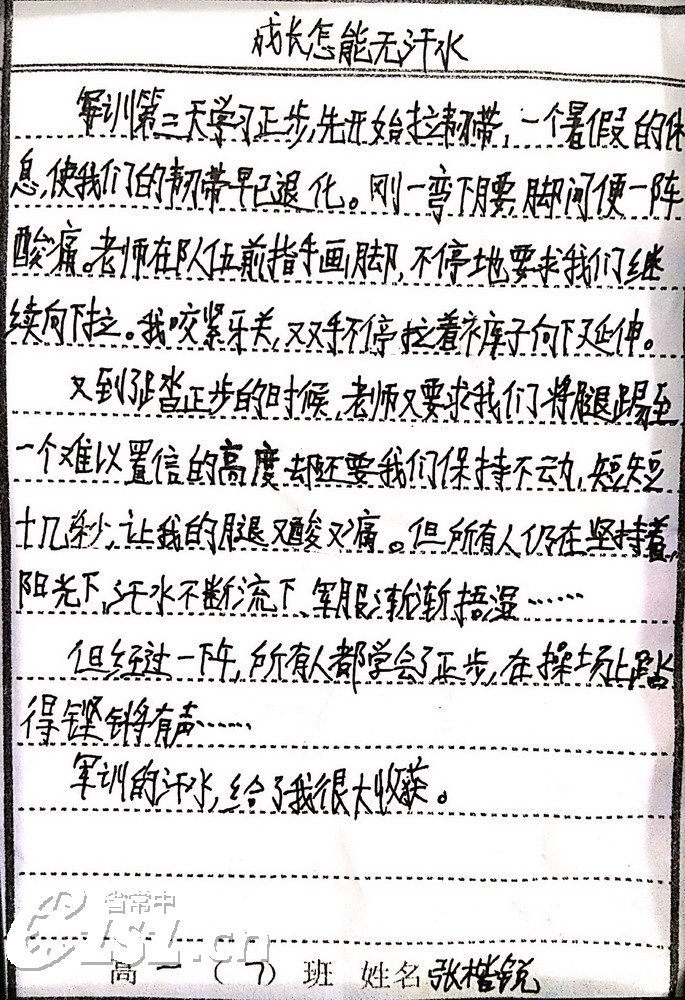 成长怎能无汗水
军训第三天学习正步,先开始拉韧带,一个暑假的休
息,使我们的韧带早已退化。刚一弯下腰,脚间便一阵
酸痛。老师在队伍前指手画脚,不停地要求我们继
续向下拉。我咬紧牙关,双手不停拉着裤子向下延伸。
又到了踏正步的时候,老师又要求我们将腿踢至
一个难以置信的高度却还要我们保持不动,短短
十几秒,让我的腿又酸又痛。但所有人仍在坚持着,
阳光下,汗水不断流下、军服渐渐捂湿……
但经过一下午,所有人都学会了正步,在操场上踏
得铿锵有声……
军训的汗水,给了我很大收获。
省常中
CSLSZ.cn
高一(7)班 姓名 张楷锐